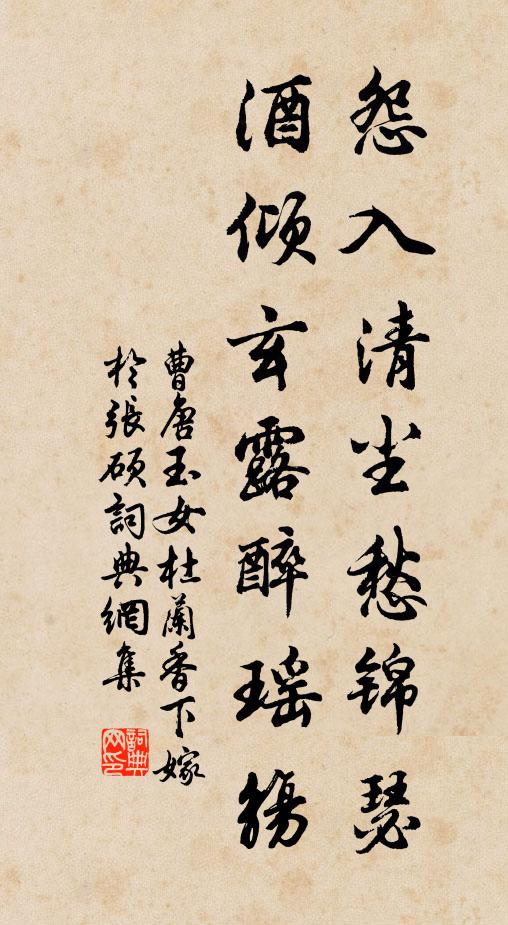 怨入清尘愁锦瑟
酒倾玄露醉瑶觞
曹唐玉女杜蘭香下嫁
於張碩詞典網集
詞典網印